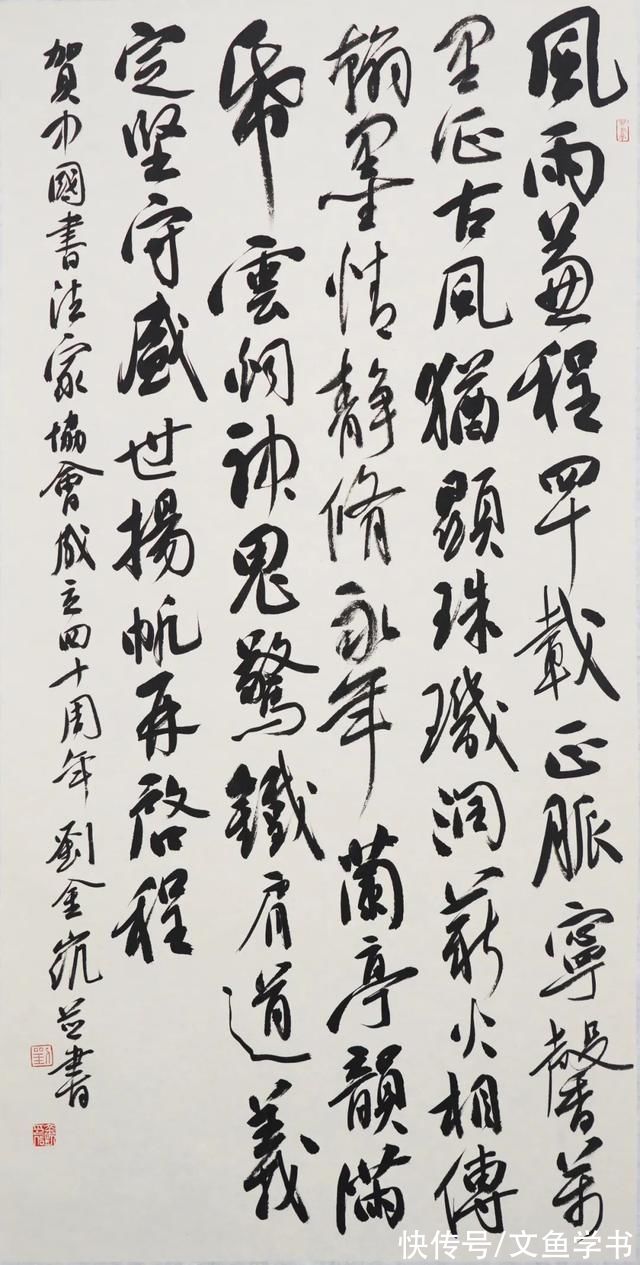 風雨兼程四十載正脈寧馨萬
里征古風猶顯珠璣润薪火相傳
翰墨情静脩永年蘭亭韻滿
帋雲烟神鬼驚鐵肩道義
定坚守盛世揚帆再啓程
賀中國書法家協會成立四十周年 劉金並書
快传号/文鱼学书